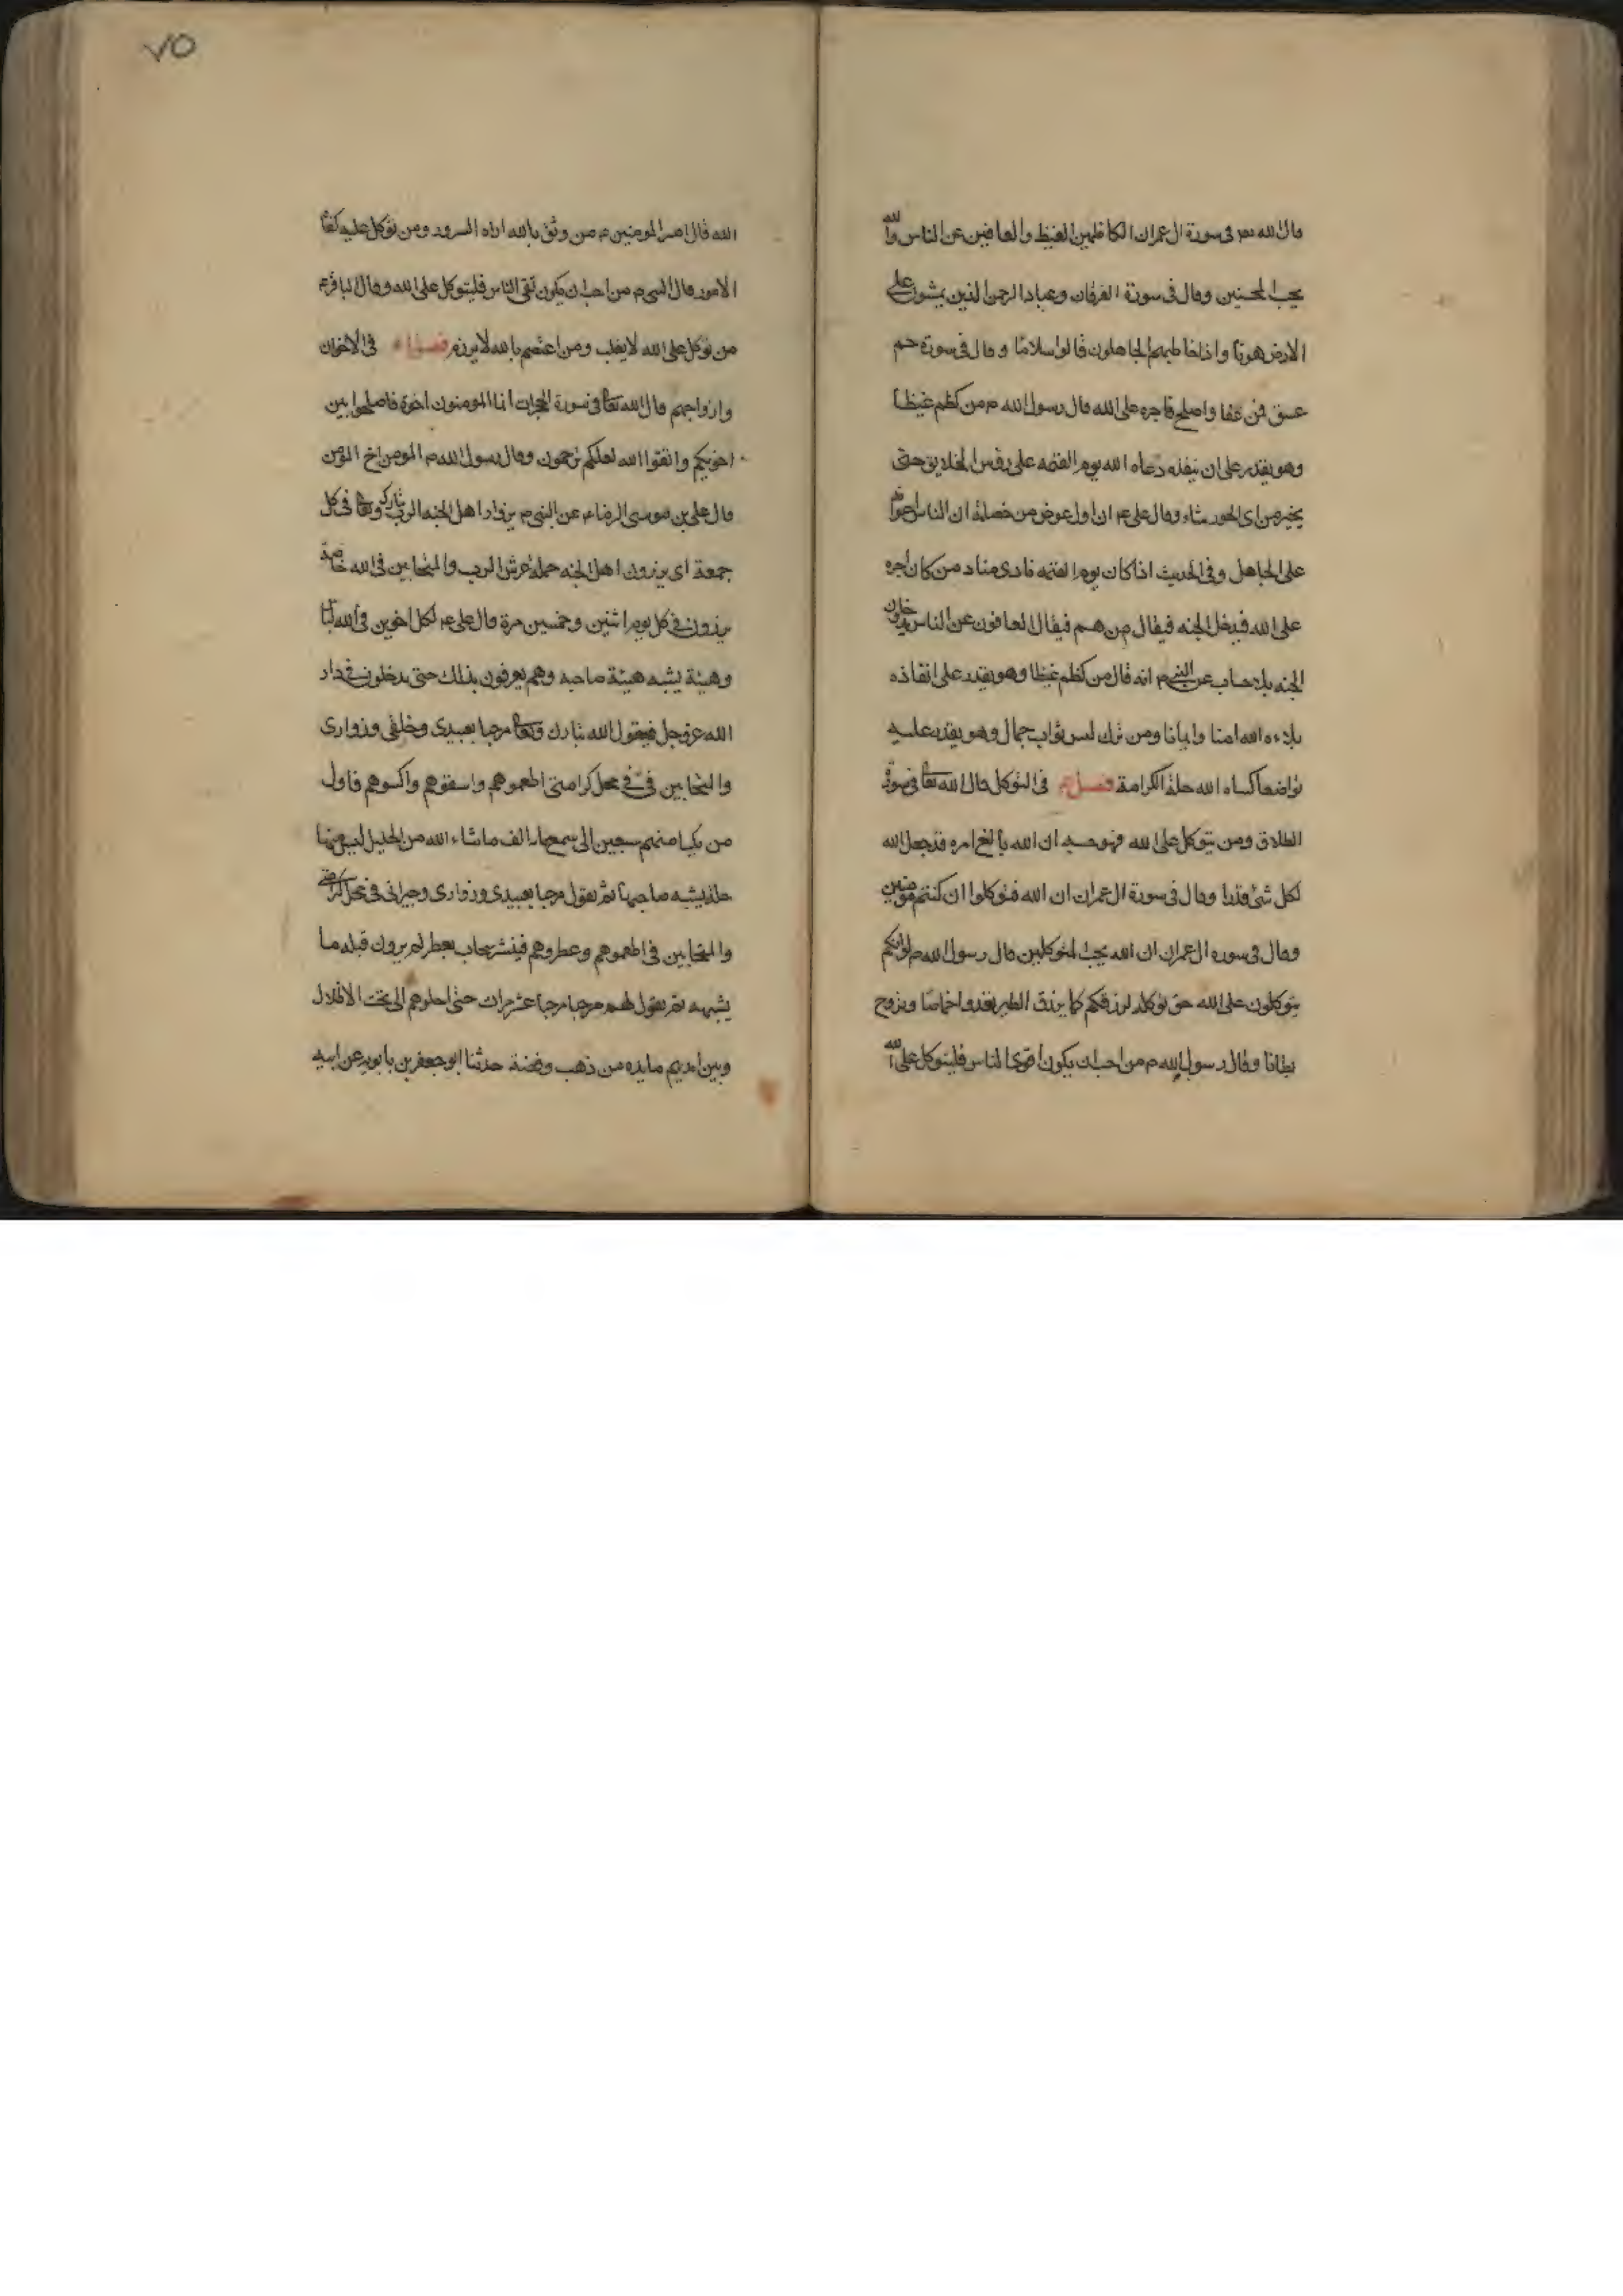 قال الله تع فى سورة ال عمران الكاظمين الغيظ والعافين عن الناس والله
يحب المحسنين وقال فى سورة الفرقان وعباد الرحمن الذين يمشون على
الارض هونا واذا خاطبهم الجاهلون قالوا سلاما وقال فى سورة حم
عسق فمن عفا واصلح فاجره على الله قال رسول الله ص من كظم غيظا
وهو يقدر على ان ينفذه دعاه الله يوم القيمه على رؤس الخلايق حتى
يخير من اى الحور شاء وقال على ع ان اول عوض من خصلة ان الناس اعوانه
على الجاهل وفى الحديث اذا كان يوم القيمه نادى مناد من كان اجره
على الله فيدخل الجنه فيقال من هم فيقال العافون عن الناس يدخلون
الجنه بلا حساب عن النبى ص انه قال من كظم غيظا وهو يقدر على انفاذه
ملاءه الله امنا وايمانا ومن ترك لبس ثواب جمال وهو يقدر عليه
تواضعا كساه الله حلة الكرامة فصل فى التوكل قال الله تعا فى سورة
الطلاق ومن يتوكل على الله فهو حسبه ان الله بالغ امره قد جعل الله
لكل شئ قدرا وقال فى سورة ال عمران ان الله فتوكلوا ان كنتم مؤمنين
وقال فى سوره ال عمران ان الله يحب المتوكلين قال رسول الله ص لو انكم
يتوكلون على الله حق توكله لرزقكم كما يرزق الطير تغدوا خماصا وتروح
بطانا وقال رسول الله ص من احب ان يكون اقوى الناس فليتوكل على الله
٧٥
الله قال امير المومنين ع من وثق بالله اراه السرور ومن توكل عليه كفاه
الامور قال النبى ص من احب ان يكون تقى الناس فليتوكل على الله وقال الباقر ع
من توكل على الله لا يغلب ومن اعتصم بالله لا يهزم فصل فى الاخوان
وازواجهم قال الله تعا فى سورة الحجرات انما المومنون اخوة فاصلحوا بين
اخويكم واتقوا الله لعلكم ترحمون وقال رسول الله ص المومن اخ المؤمن
قال على بن موسى الرضا ع عن النبى ص يزوار اهل الجنه الرب تبارك وتعا فى كل
جمعة اى يزرون اهل الجنه حملة عرش الرب والمتحابين فى الله خاصة
يزرون فى كل يوم اثنين وخمسين مرة قال على ع لكل اخوين فى الله لباس
وهيئة يشبه هيئة صاحبه وهم يعرفون بذلك حتى يدخلون فى دار
الله عز وجل فيقول الله تبارك وتعا مرحبا بعبيدى وخلقى وزوارى
والمتحابين فى فى محل كرامتى اطعموهم واسقوهم واكسوهم فاول
من يكسا منهم سبعين الى سبعماة الف ما شاء الله من الحليل ليس منها
حلة يشبه صاحبها ثم يقول مرحبا بعبيدى وزوارى وجيرانى فى محل كرامتى
والمتحابين فى اطعموهم وعطروهم فينشر سحاب بعطر لم يرون قبله ما
يشبهه ثم يقول لهم مرحبا مرحبا عشر مرات حتى احلوهم الى تحت الاظلال
وبين ايديهم مايده من ذهب وفضة حدثنا ابو جعفر بن بابويه عن ابيه